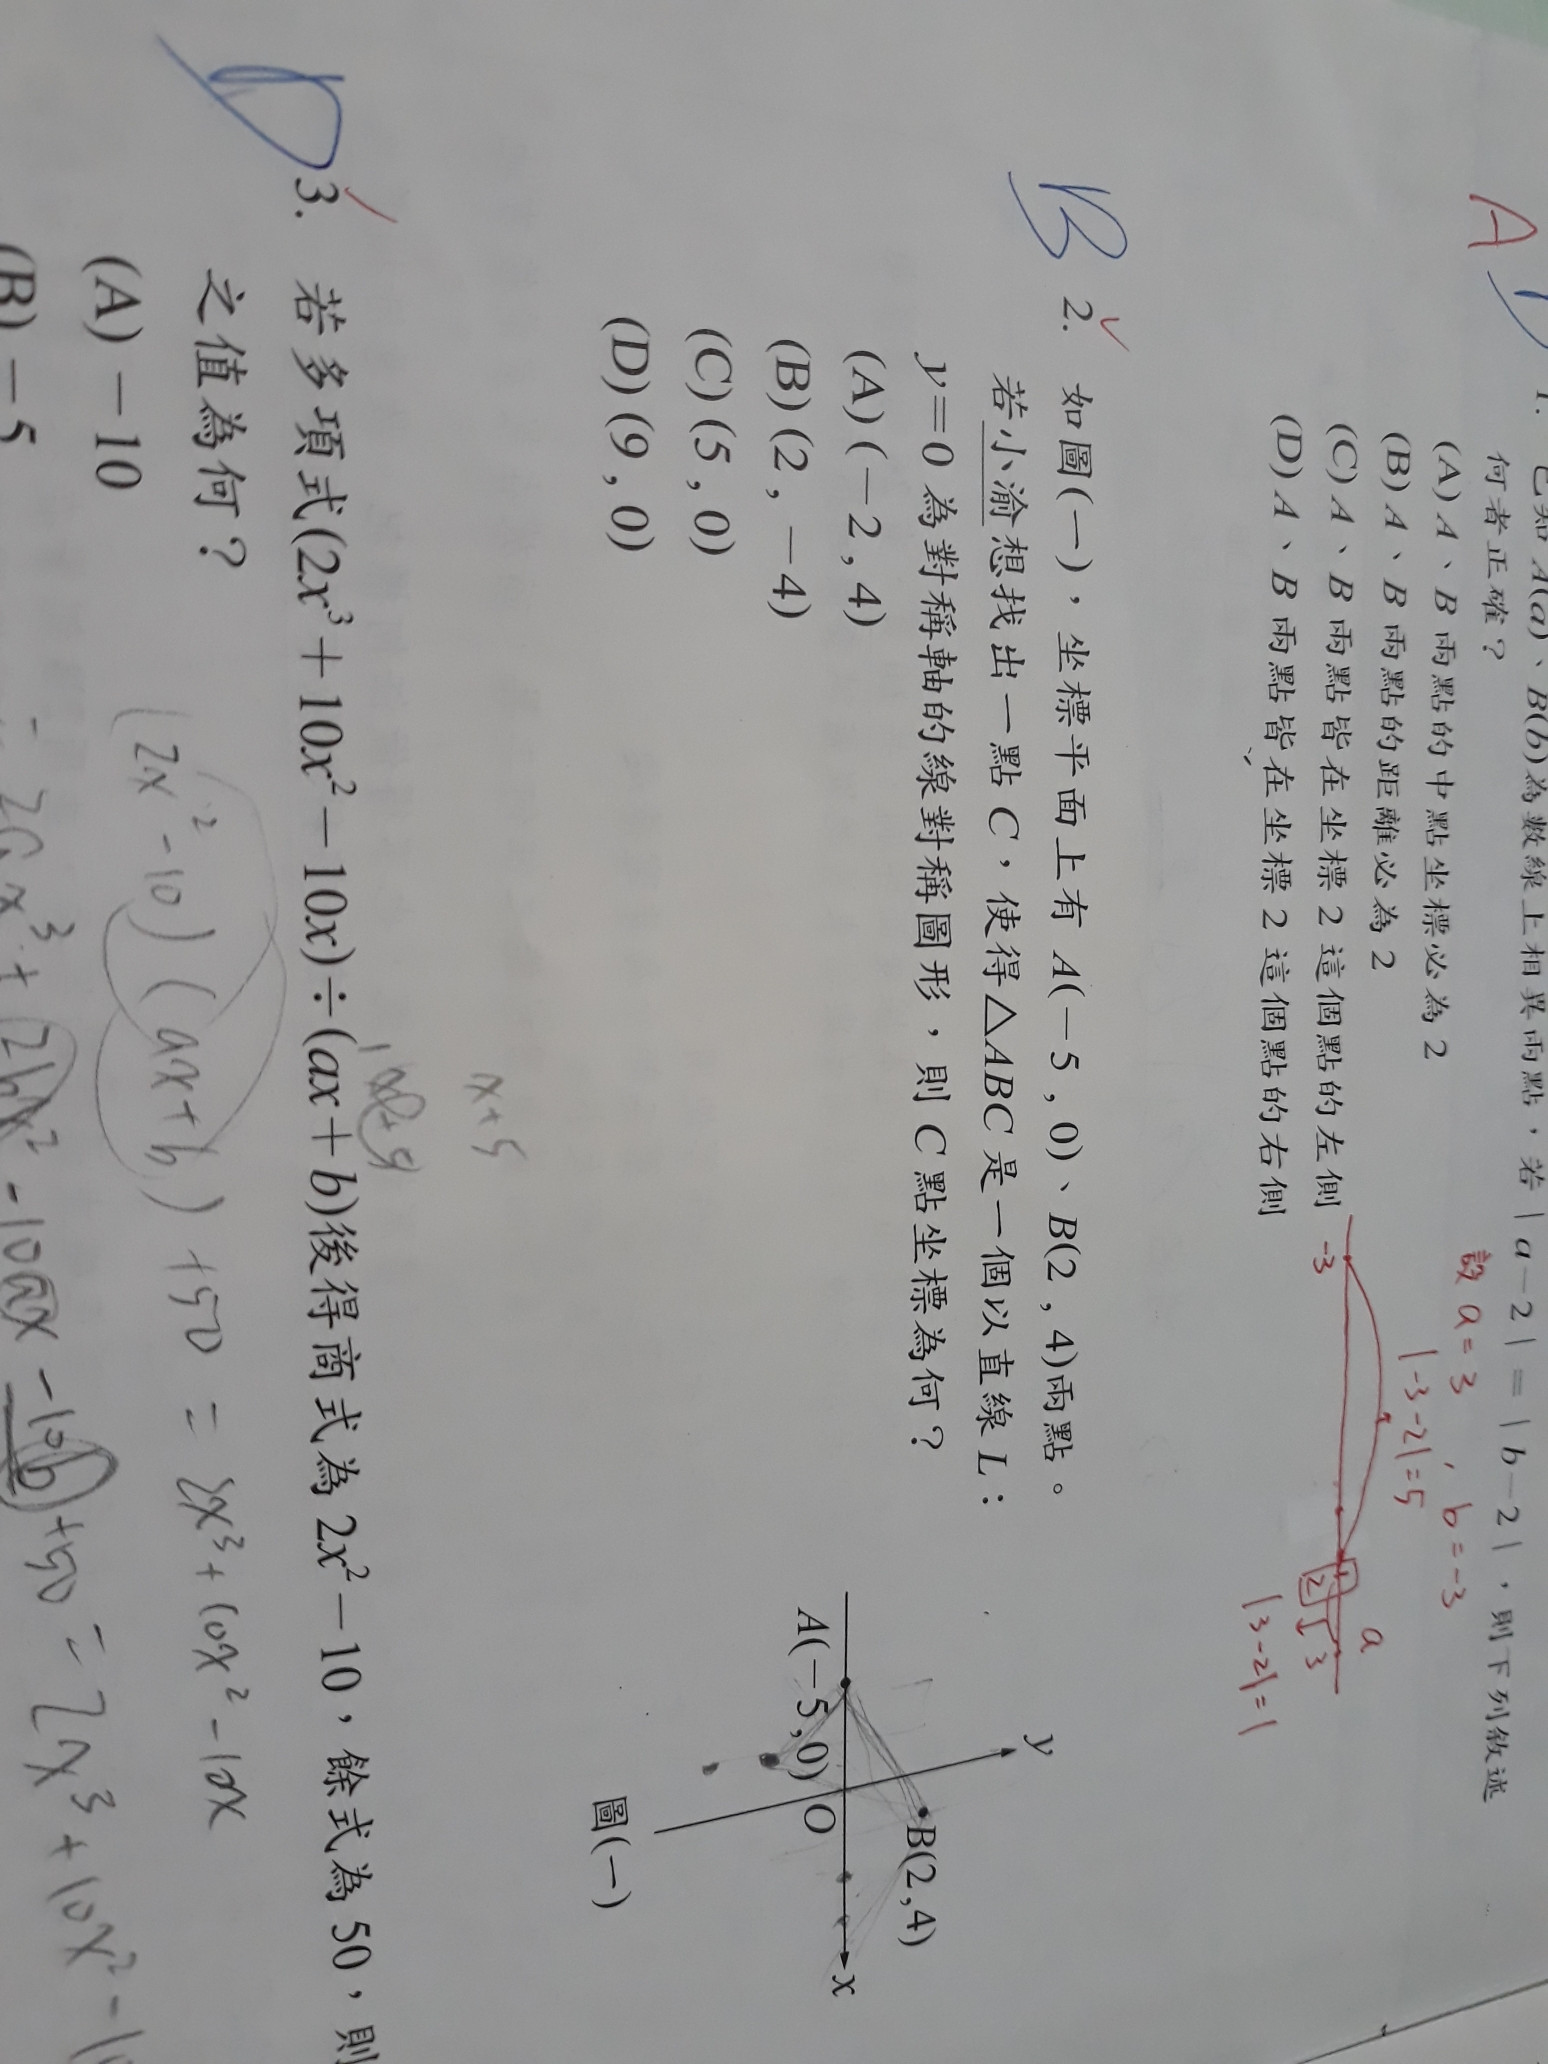 A
1. 已知 A(a)、B(b)為數線上相異兩點，若|a－2|＝|b－2|，則下列敘述
何者正確？
設 a = 3 , b = -3
(A) A、B 兩點的中點坐標必為 2
|-3-2|=5
(B) A、B 兩點的距離必為 2
(C) A、B 兩點皆在坐標 2 這個點的左側
-3 2 3 a
(D) A、B 兩點皆在坐標 2 這個點的右側
|3-2|=1
B
2. 如圖(一)，坐標平面上有 A(－5 , 0)、B(2 , 4)兩點。
若小渝想找出一點 C，使得△ABC 是一個以直線 L：
y＝0 為對稱軸的線對稱圖形，則 C 點坐標為何？
(A) (－2 , 4)
(B) (2 , －4)
(C) (5 , 0)
(D) (9 , 0)
y
B(2 , 4)
x
A(－5 , 0)
O
圖(一)
x+5
D
3. 若多項式(2x³＋10x²－10x)÷(ax＋b)後得商式為 2x²－10，餘式為 50，則
之值為何？
(2x²-10)(ax+b)+50 = 2x³+10x²-10x
(A) －10
2ax³+2bx²-10ax-10b+50=2x³+10x²-1
(B) －5